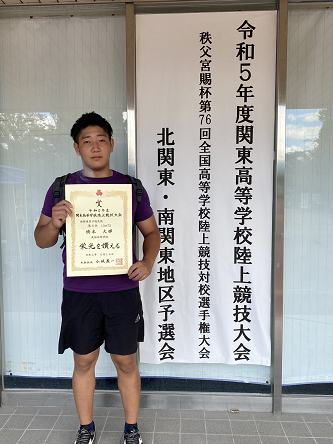 令和5年度関東高等学校陸上競技大会
秩父宮賜杯第76回全国高等学校陸上競技対校選手権大会
北関東・南関東地区予選会
賞
令和5年度
関東高等学校陸上競技大会
栄光を讃える